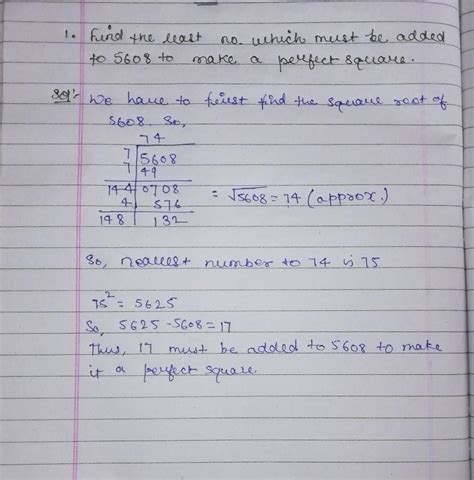 1. Find the least no. which must be added
to 5608 to make a perfect square.
Sol:- We have to first find the square root of
5608. So,
74
7 5608
7 49
144 0708 = √5608 = 74 (approx.)
4 576
148 132
So, nearest number to 74 is 75
75² = 5625
So, 5625 - 5608 = 17
Thus, 17 must be added to 5608 to make
it a perfect square.